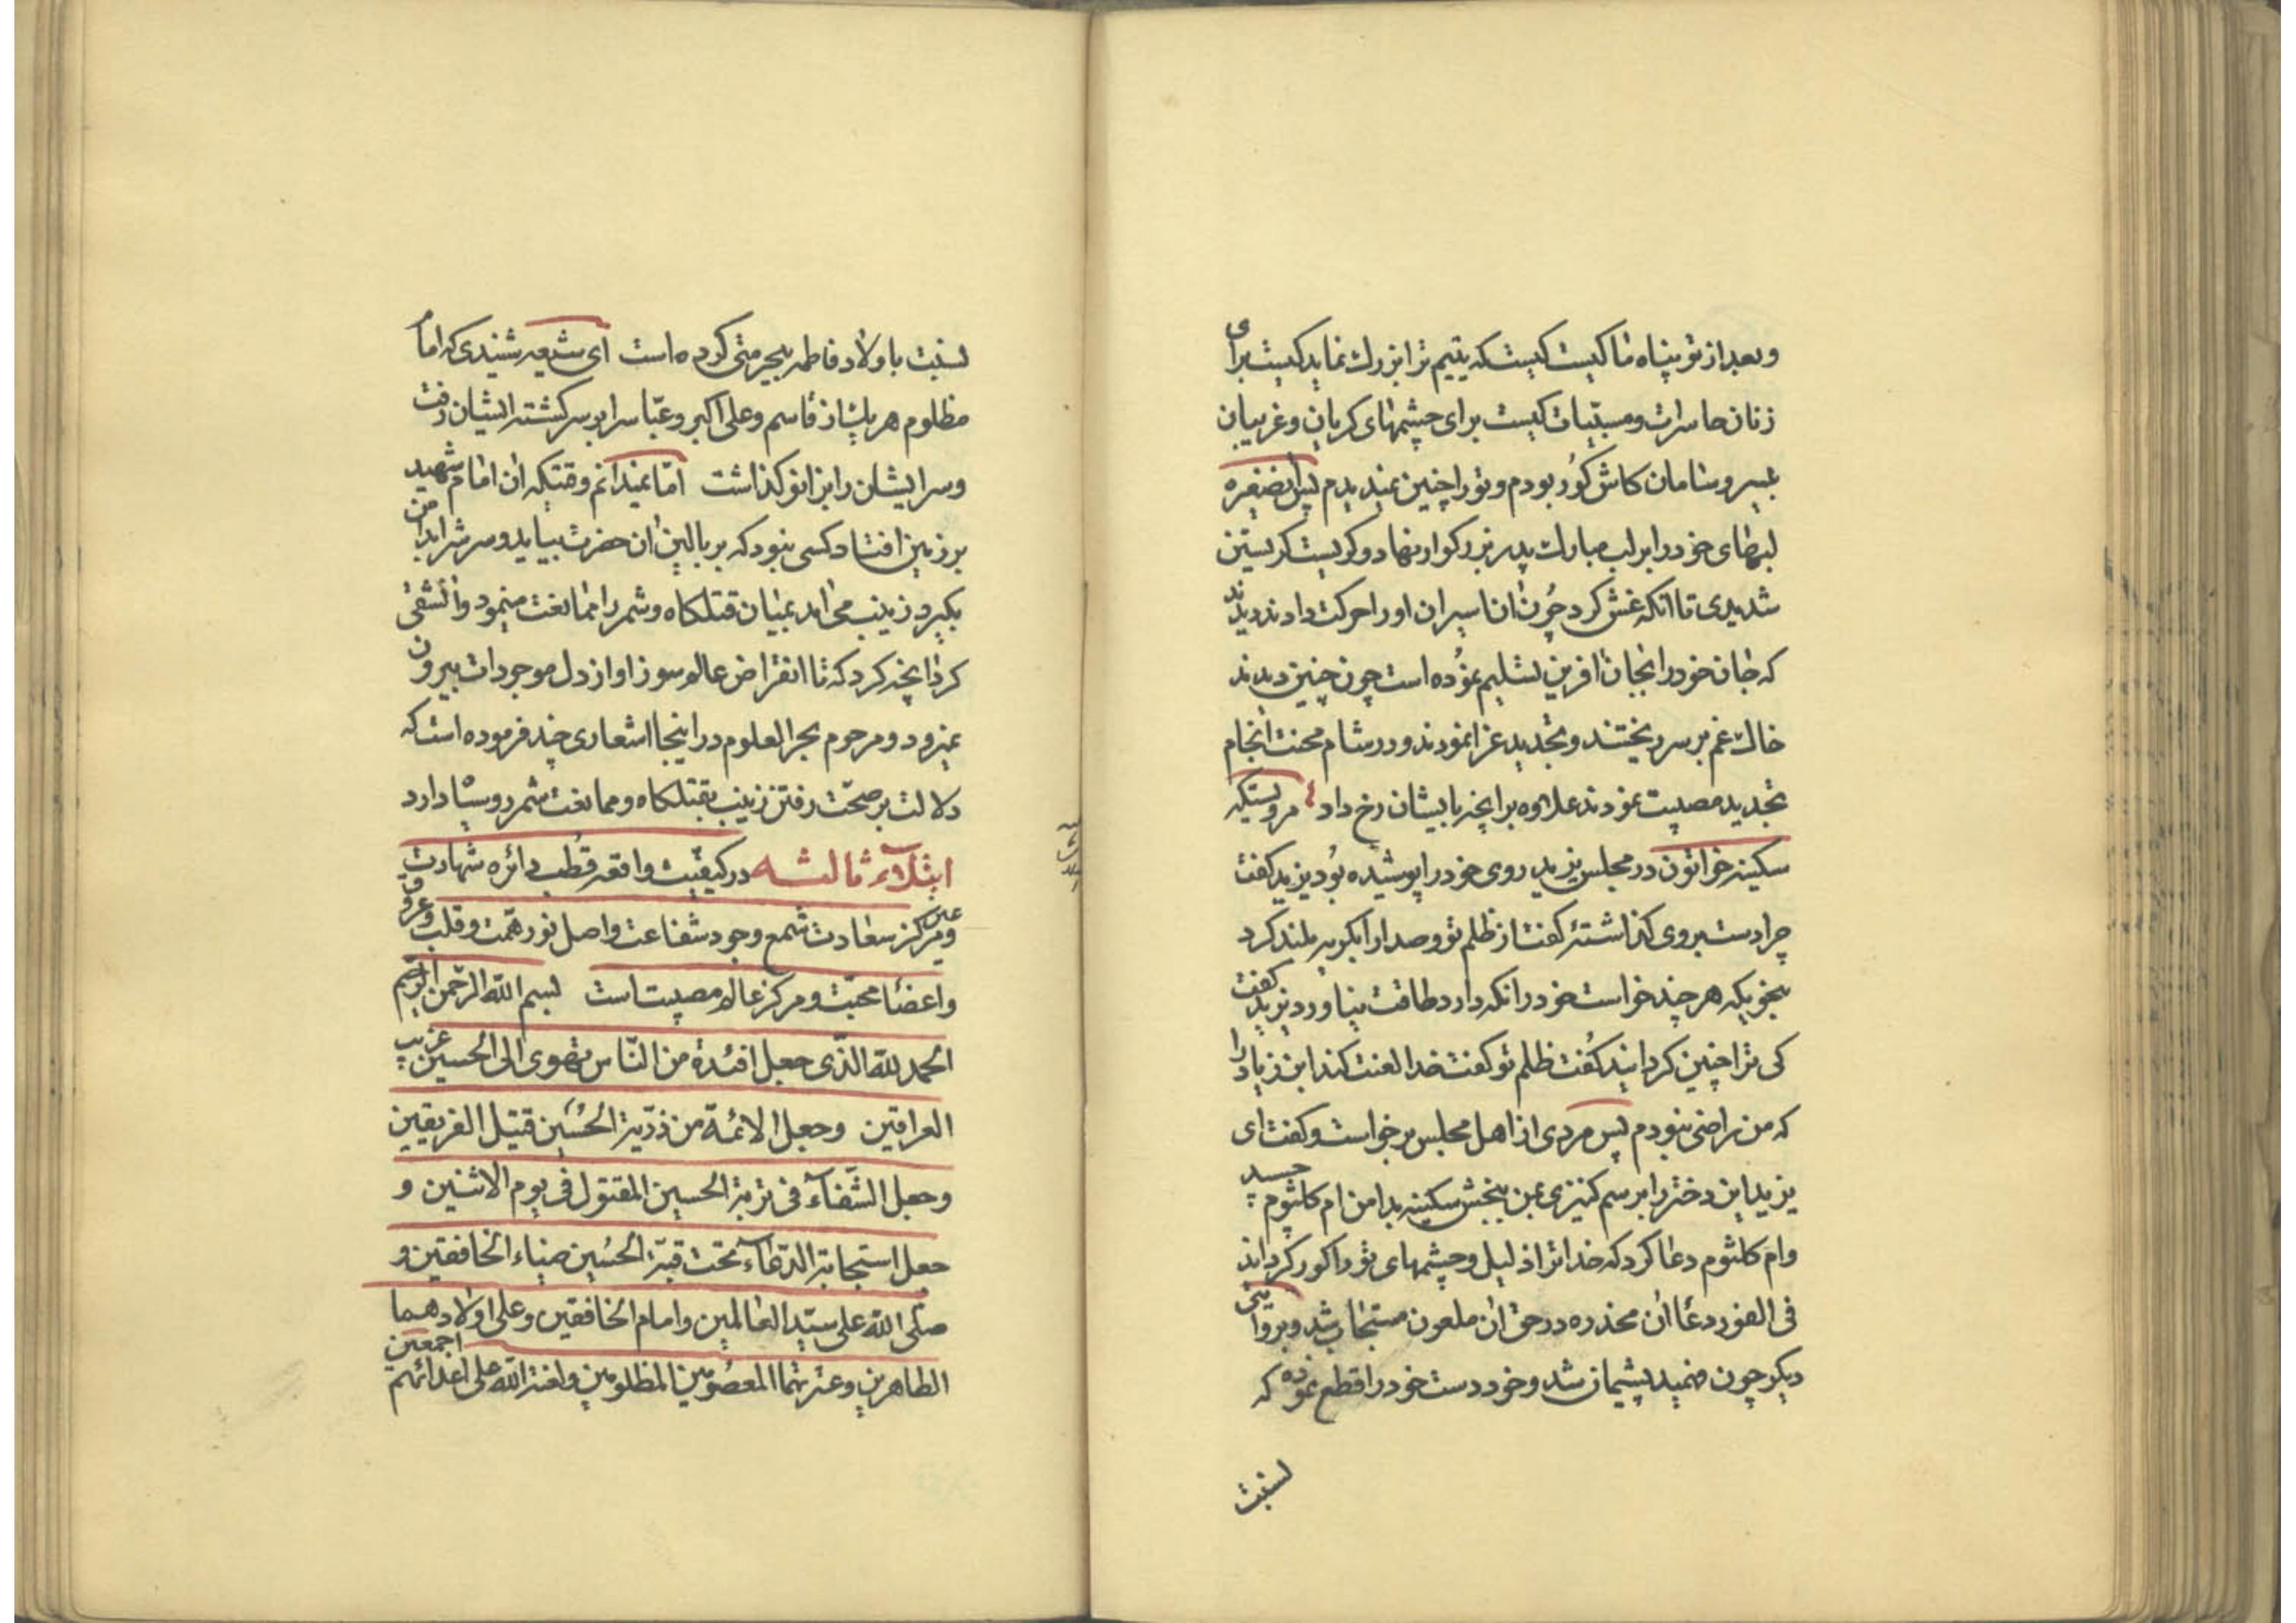 وبعد از تو پناه ما کیست کیست که یتیم ترا بزرك نماید کیست برای
زنان حاسرات ومسبیات کیست برای چشمهای کریان وغریبان
بیسر وسامان کاش کور بودم وتو را چنین نمیدیدم پس انصغیره
لبهای خود را بر لب مبارك پدر بزرکوار نهاد وکریست کریستن
شدیدی تا انکه غش کرد چون ان اسیران او را حرکت دادند دیدند
که جان خود را بجان افرین تسلیم نموده است چون چنین دیدند
خاك غم بر سر ریختند وتجدید عزا نمودند ودر شام محنت انجام
تجدید مصیبت نمودند علاوه بر انچه بایشان رخ داد مرویستکه
سکینه خواتون در مجلس یزید روی خود را پوشیده بود یزید کفت
چرا دست بروی کذاشتئ کفت از ظلم تو وصدا را بکریه بلند کرد
بنحویکه هر چند خواست خود را نکه دارد طاقت نیاورد یزید کفت
کی ترا چنین کردانید کفت ظلم تو کفت خدا لعنت کند ابن زیاد را
که من راضی نبودم پس مردی از اهل مجلس برخواست وکفت ای
یزید این دختر را برسم کنیزی بمن ببخش سکینه بدامن ام کلثوم چسبید
وام کلثوم دعا کرد که خدا ترا ذلیل وچشمهای تو را کور کرداند
فی الفور دعا ان مخدره در حق ان ملعون مستجاب شد وبروایتی
دیکر چون فهمید پشیمان شد وخود دست خود را قطع نموده که
نسبت
نسبت باولاد فاطمه بیحرمتی کرده است ای شیعه شنیدی که امام
مظلوم هر یك از قاسم وعلی اکبر وعباس را بر سر کشته ایشان رفت
وسر ایشان را بزانو کذاشت اما نمیدانم وقتیکه ان امام شهید
بر زمین افتاد کسی نبود که بر بالین ان حضرت بیاید وسرش را بدامن
بکیرد زینب می امد بمیان قتلکاه وشمر را ممانعت مینمود وان شقی
کرد انچه کرد که تا انقراض عالم سوز او از دل موجودات بیرون
نمیرود ومرحوم بحر العلوم در اینجا اشعاری چند فرموده است که
دلالت بر صحت رفتن زینب بقتلکاه وممانعت شمر روسیاه دارد
ابتلآء ثالثه در کیفیت واقعه قطب دائره شهادت
ومرکز سعادت شمع وجود شفاعت واصل نور همت وقلب وعروق
واعضا محبت ومرکز عالم مصیبت است بسم الله الرحمن الرحیم
الحمد لله الذی جعل افئدة من الناس تهوی الی الحسین غریب
العراقین وجعل الائمة من ذریة الحسین قتیل الفریقین
وجعل الشفآء فی تربة الحسین المقتول فی یوم الاثنین و
جعل استجابة الدعآء تحت قبة الحسین ضیاء الخافقین و
صلی الله علی سید العالمین وامام الخافقین وعلی اولادهما
الطاهرین وعترتهما المعصومین المظلومین ولعنة الله علی اعدائهم اجمعین